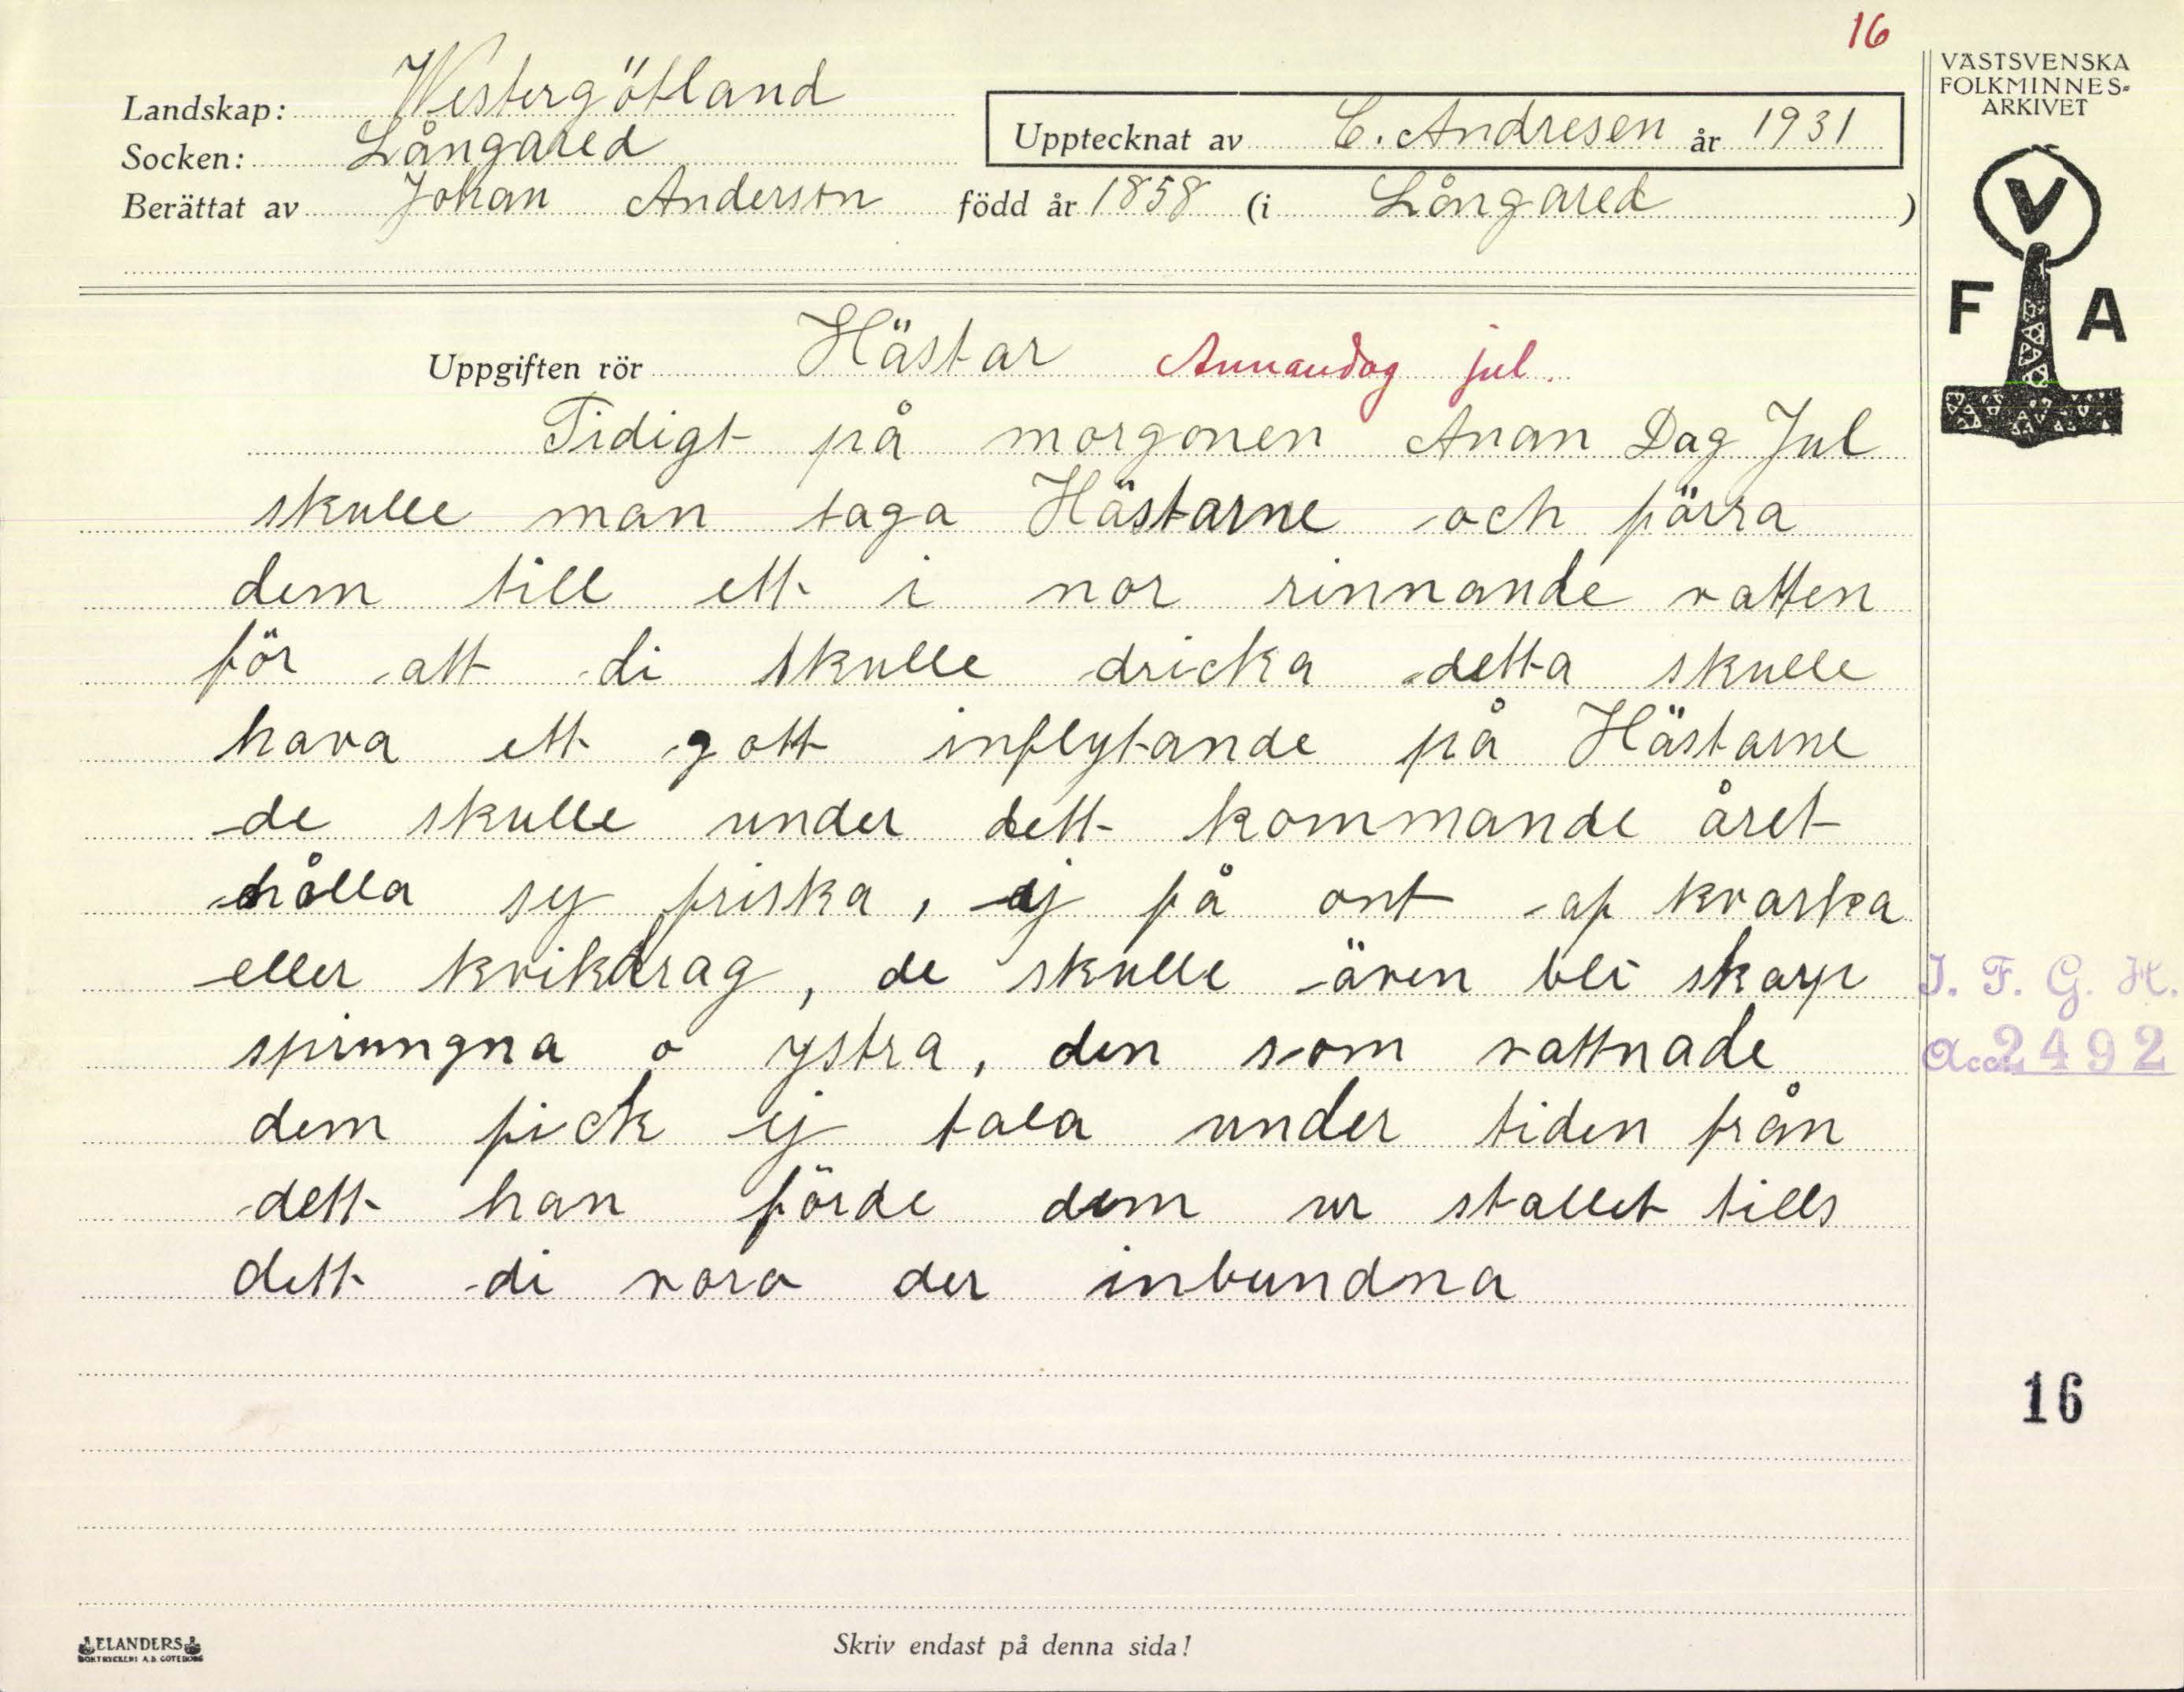 16
VÄSTSVENSKA
FOLKMINNES-
ARKIVET
Landskap: Westergötland
Socken: Långared
Upptecknat av C. Andresen år 1931
Berättat av Johan Anderson född år 1858 (i Långared )
V
F A
Uppgiften rör Hästar Annandag jul.
Tidigt på morgonen Anan Dag Jul
skulle man taga Hästarne och förra
dem till ett i nor rinnande vatten
för att di skulle dricka detta skulle
hava ett gott inflytande på Hästarne
de skulle under dett kommande året
hålla sej friska, ej få ont af kvarka
eller kvikdrag, de skulle även bli skarp
sprungna o ystra, den som vattnade
dem fick ej tala under tiden från
dett han förde dem ur stallet tills
dett di voro der inbundna
I. F. G. H.
Acc. 2492
16
ELANDERS
BOKTRYCKERI A.B. GÖTEBORG
Skriv endast på denna sida!